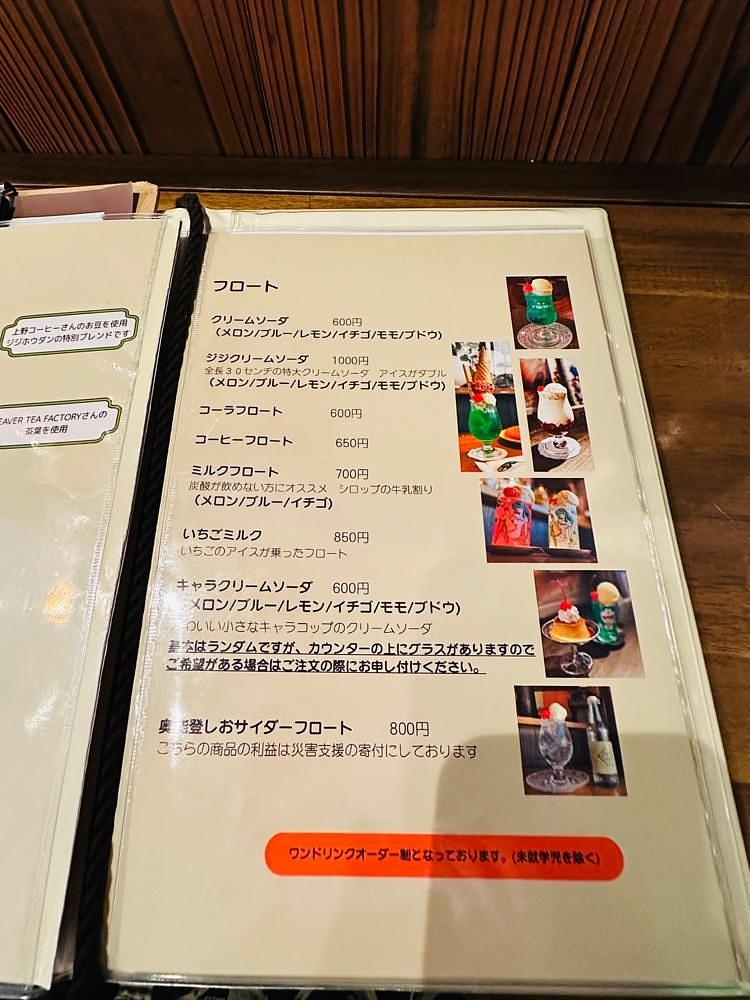 上野コーヒーさんのお豆を使用
ジジホウダンの特別ブレンドです
EAVER TEA FACTORYさんの
茶葉を使用
フロート
クリームソーダ 600円
(メロン/ブルー/レモン/イチゴ/モモ/ブドウ)
ジジクリームソーダ 1000円
全長30センチの特大クリームソーダ アイスがダブル
(メロン/ブルー/レモン/イチゴ/モモ/ブドウ)
コーラフロート 600円
コーヒーフロート 650円
ミルクフロート 700円
炭酸が飲めない方にオススメ シロップの牛乳割り
(メロン/ブルー/イチゴ)
いちごミルク 850円
いちごのアイスが乗ったフロート
キャラクリームソーダ 600円
メロン/ブルー/レモン/イチゴ/モモ/ブドウ)
わいい小さなキャラコップのクリームソーダ
基本はランダムですが、カウンターの上にグラスがありますので
ご希望がある場合はご注文の際にお申し付けください。
奥能登しおサイダーフロート 800円
こちらの商品の利益は災害支援の寄付にしております
ワンドリンクオーダー制となっております。(未就学児を除く)